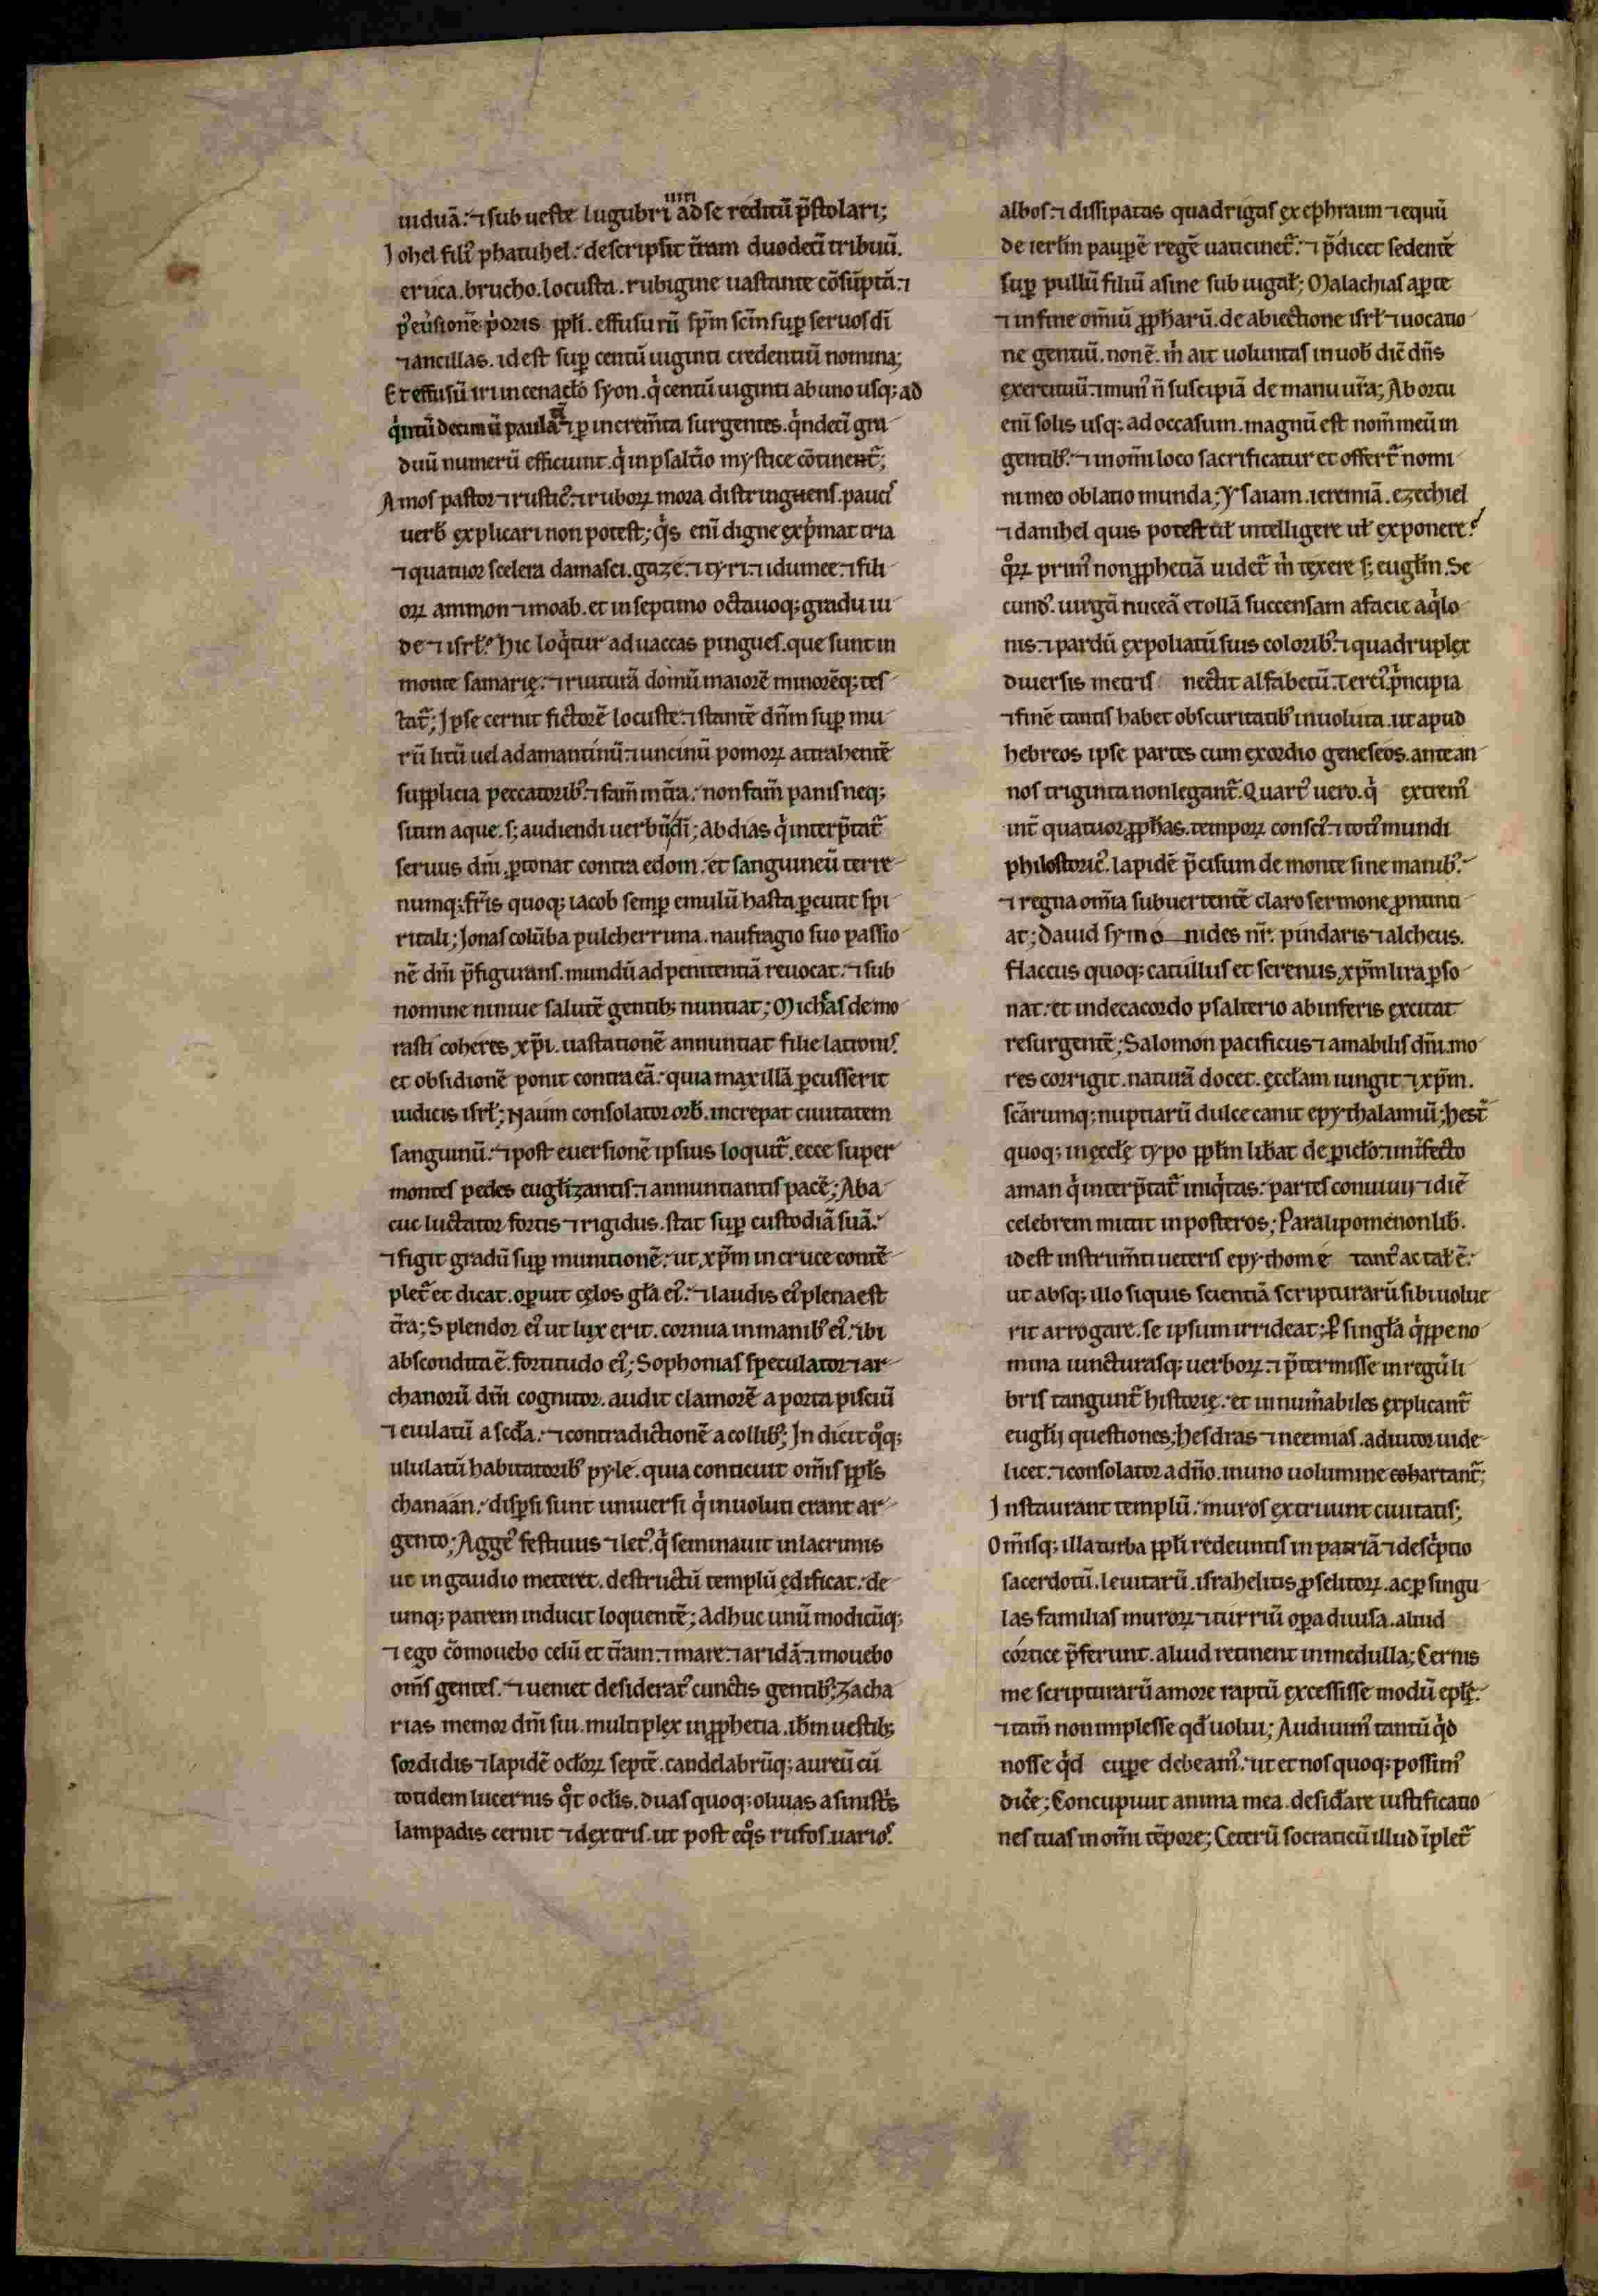 uiduā: ⁊ sub ueste lugubri uiri ad se reditū p̄stolari;
Johel fili᾽ phatuhel: descripsit t̄ram duodeci̅ tribuū.
eruca. brucho. locusta. rubigine uastante cōsūptā: ⁊
p᾽ eu᾽sionē p᾽oris ppl̄i. effusurū sp̄m sc̄m sup̱ seruos dī
⁊ ancillas. id est sup̱ centū uiginti credentiū nomina;
Et effusū iri in cenac̄lo syon. q̇ centū uiginti ab uno usq; ad
q̇ntū decimū paulā ⁊ p̱ increm̄ta surgentes. q̇ndeci̅ gra
duū numerū efficiunt. q̇ in psalt̄io mystice cōtinent᷑;
Amos pastor ⁊ rustic᾽. ⁊ ruboꝝ mora distringuens. pauci᾽
uerb̄ explicari non potest; q̇s eni̅ digne exp̄mat tria
⁊ quatuor scelera damasci. gaze. ⁊ tyri. ⁊ idumee. ⁊ fili
oꝝ ammon ⁊ moab. et in septimo octauoq; gradu iu
de ⁊ isrl̄? hic loq̇tur ad uaccas pingues. que sunt in
monte samarię: ⁊ ruiturā domū maiorē minorēq; tes
tat᷑; Ipse cernit fictorē locuste. ⁊ stantē dn̄m sup̱ mu
rū litū uel adamantinū. ⁊ uncinū pomoꝝ attrahentē
supplicia peccatorib᾽. ⁊ fam̄ in t̄ra: non fam̄ panis neq;
sitim aque. s; audiendi uerbi dī; Abdias q̇ interp̄tat᷑
seruus dn̄i. p̱tonat contra edom: et sanguineū terre
numq; fr̄is quoq; iacob semp̱ emulū hasta p̱cutit spi
ritali; Jonas colūba pulcherrima. naufragio suo passio
nē dn̄i p̄figurans. mundū ad penitentiā reuocat: ⁊ sub
nomine niniue salutē gentib; nuntiat; Micheas de mo
rasti coheres xp̄i. uastationē annuntiat filie latronis᾽
et obsidionē ponit contra eā: quia maxillā p̱cusserit
iudicis isrl̄; Naum consolator orb̄. increpat ciuitatem
sanguinū: ⁊ post euersionē ipsius loquit᷑. ecce super
montes pedes eugl̄izantis. ⁊ annuntiantis pacē; Aba
cuc luctator fortis ⁊ rigidus. stat sup̱ custodiā suā:
⁊ figit gradū sup̱ munitionē: ut xp̄m in cruce contē
plet᷑ et dicat. op̱uit cęlos gl̄a ei᾽: ⁊ laudis ei᾽ plena est
t̄ra; Splendor ei᾽ ut lux erit. cornua in manib᾽ ei᾽: ibi
abscondita ē. fortitudo ei᾽; Sophonias speculator ⁊ ar
chanorū dn̄i cognitor. audit clamorē a porta pisciū
⁊ eiulatū a scd̄a: ⁊ contradictionē a collib᾽; Indicit q̊q;
ululatū habitatorib᾽ pyle. quia conticuit omīs ppl̄s
chanaan: disp̱si sunt uniuersi q̇ inuoluti erant ar
gento; Agge᾽ festiuus ⁊ let᾽. q̇ seminauit in lacrimis
ut in gaudio meteret. destructū templū ędificat: de
umq; patrem inducit loquentē; Adhuc unū modicūq;
⁊ ego cōmouebo celū et t̄ram. ⁊ mare. ⁊ aridā. ⁊ mouebo
om̄s gentes. ⁊ ueniet desiderat᾽ cunctis gentib᾽; Zacha
rias memor dn̄i sui. multiplex in pphetia. ih̄m uestib;
sordidis ⁊ lapidē ocl̄oꝝ septē. candelabrūq; aureū cū
totidem lucernis q̊t ocl̄is. duas quoq; oliuas a sinist᾽s
lampadis cernit ⁊ dextris. ut post eq̊s rufos. uarios᾽
albos. ⁊ dissipatas quadrigas ex ephraim ⁊ equū
de ierl̄m paup̱ē regē uaticinet᷑: ⁊ p̄dicet sedentē
sup̱ pullū filiū asine subiugal̄; Malachias ap̱te
⁊ in fine omiū pph̄arū. de abiectione isrl̄ ⁊ uocatio
ne gentiū. non ē. m̄ ait uoluntas in uob̄ dic̄ dn̄s
exercituū: ⁊ mun᾽ n̄ suscipiā de manu ur̄a; Ab ortu
eni̅ solis usq; ad occasum. magnū est nom̄ meū in
gentib᾽. ⁊ in om̄i loco sacrificatur et offert᷑ nomi
ni meo oblatio munda; Ysaiam. ieremiā. ezechiel
⁊ danihel quis potest ul̄ intelligere ul̄ exponere?
q̊ꝝ prim᾽ non pphetiā uidet᷑ m̄ texere s; eugl̄m. Se
cund᾽. uirgā nuceā et ollā succensam a facie aq̇lo
nis. ⁊ pardū expoliatū suis colorib᾽. ⁊ quadruplex
diuersis metris nectit alfabetū. Terci᾽ ṗncipia
⁊ finē tantis habet obscuritatib᾽ inuoluta. ut apud
hebreos ipse partes cum exordio geneseos. ante an
nos triginta non legant᷑. Quart᾽ uero. q̇ extrem᾽
int̄ quatuor pph̄as. temporꝝ consci᾽. ⁊ toti᾽ mundi
philostoric᾽. lapidē p̄cisum de monte sine manib᾽:
⁊ regna om̄ia subuertentē claro sermone pnunti
at; Dauid symo nides nr̄. pindaris ⁊ alcheus.
flaccus quoq; catullus et serenus. xp̄m lira p̱so
nat: et in decacordo psalterio ab inferis excitat
resurgentē; Salomon pacificus ⁊ amabilis dn̄i. mo
res corrigit. naturā docet. ęccl̄am iungit ⁊ xp̄m.
sc̄arumq; nuptiarū dulce canit epythalamiū; hest᷑
quoq; in ęccl̄ę typo ppl̄m lib̄at de p̱icl̄o. ⁊ int̄fecto
aman q̇ interp̄tat᷑ iniq̇tas: partes conuiuij ⁊ diē
celebrem mittit in posteros; Paralipomenon lib̄.
id est instrum̄ti ueteris epythome tant᾽ ac tal̄ ē:
ut absq; illo siquis scientiā scripturarū sibi uolue
rit arrogare. se ipsum irrideat; P̱ singl̄a q̇ppe no
mina iuncturasq; uerboꝝ. ⁊ p̄termisse in regū li
bris tangunt᷑ historię: et innum̄abiles explicant᷑
eugl̄ij questiones; hesdras ⁊ neemias. adiutor uide
licet. ⁊ consolator a dn̄o. in uno uolumine cohartant᷑;
Instaurant templū: muros extruunt ciuitatis;
Omīsq; illa turba ppl̄i redeuntis in patriā ⁊ desc᾽ptio
sacerdotū. leuitarū. israhelitis pselitoꝝ. ac p̱ singu
las familias muroꝝ ⁊ turriū op̱a diuisa. aliud
cortice p̄ferunt. aliud retinent in medulla; Cernis
me scripturarū amore raptū excessisse modū epl̄ę:
⁊ tam̄ non implesse qd̄ uolui; Audiuim᾽ tantū q̇d
nosse q̇d cup̱e debeam᾽: ut et nos quoq; possim᾽
dic̄e; Concupiuit anima mea. desid̄are iustificatio
nes tuas in om̄i tēpore; Ceterū socraticū illud i̅plet᷑